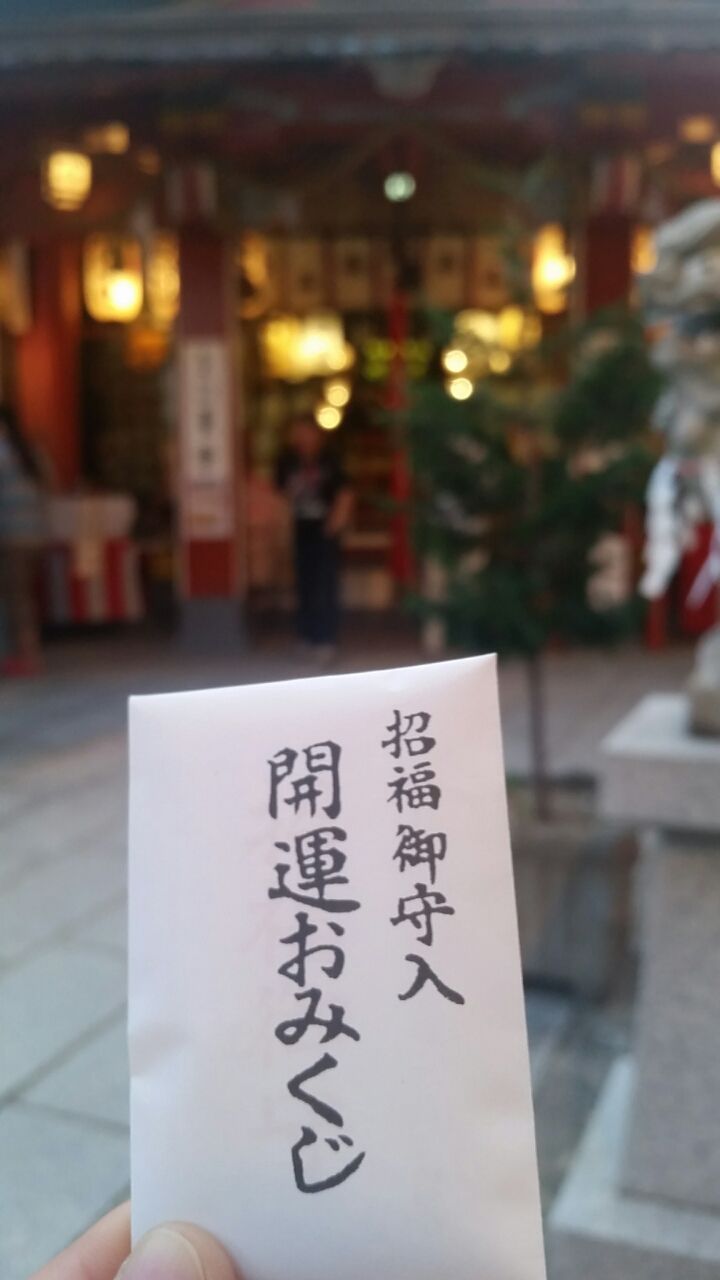 招福御守入
開運おみくじ